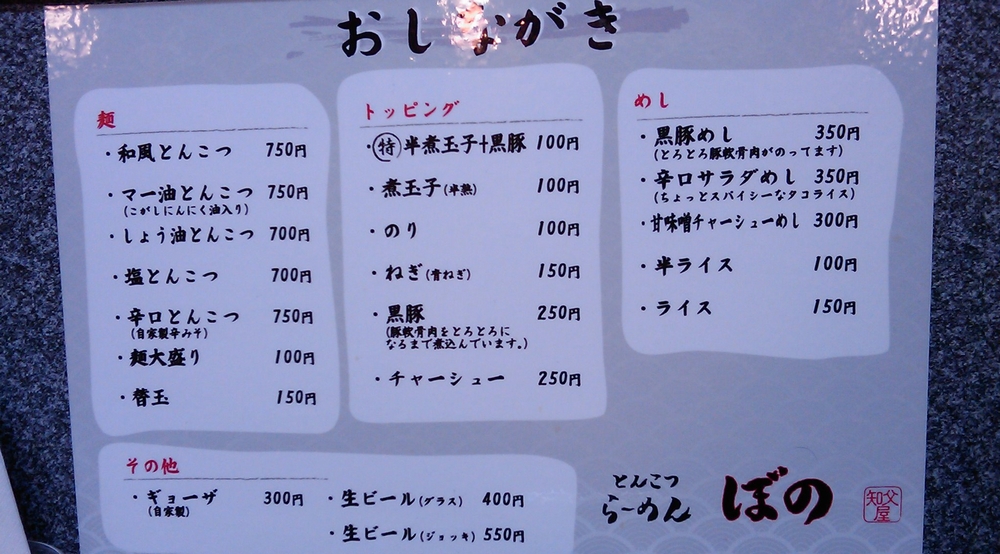 おしながき
麺
・和風とんこつ 750円
・マー油とんこつ 750円
(こがしにんにく油入り)
・しょう油とんこつ 700円
・塩とんこつ 700円
・辛口とんこつ 750円
(自家製辛みそ)
・麺大盛り 100円
・替玉 150円
トッピング
・特 半煮玉子+黒豚 100円
・煮玉子(半熟) 100円
・のり 100円
・ねぎ(青ねぎ) 150円
・黒豚 250円
(豚軟骨肉をとろとろに
なるまで煮込んでいます。)
・チャーシュー 250円
めし
・黒豚めし 350円
(とろとろ豚軟骨肉がのってます)
・辛口サラダめし 350円
(ちょっとスパイシーなタコライス)
・甘味噌チャーシューめし 300円
・半ライス 100円
・ライス 150円
その他
・ギョーザ 300円
(自家製)
・生ビール(グラス) 400円
・生ビール(ジョッキ) 550円
とんこつ
らーめん
ぼの
知父屋